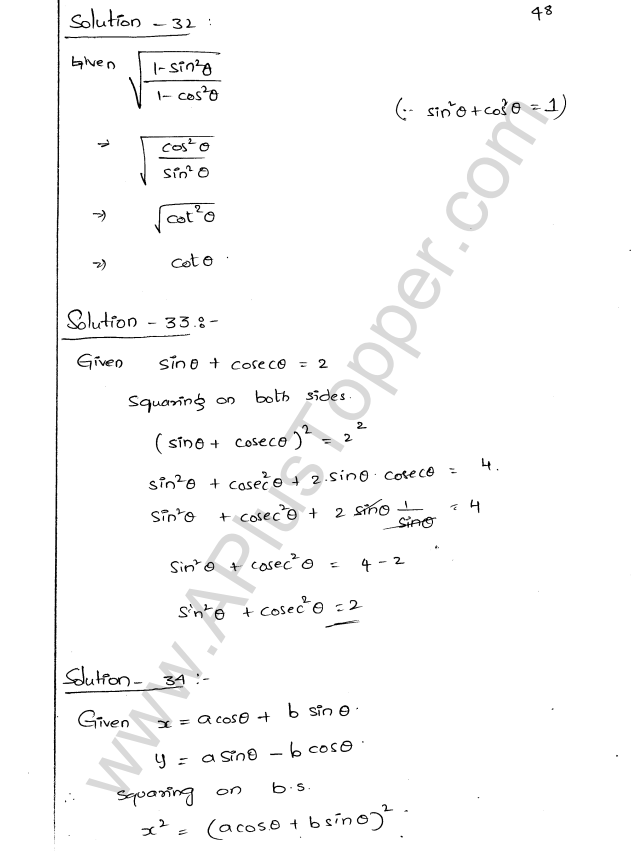 48
Solution - 32 :
Given √(1 - sin²θ / 1 - cos²θ)
(∵ sin²θ + cos²θ = 1)
⇒ √(cos²θ / sin²θ)
⇒ √cot²θ
⇒ cotθ .
Solution - 33 :-
Given sinθ + cosecθ = 2
Squaring on both sides.
(sinθ + cosecθ)² = 2²
sin²θ + cosec²θ + 2.sinθ. cosecθ = 4.
Sin²θ + cosec²θ + 2 sinθ 1/sinθ = 4
Sin²θ + cosec²θ = 4 - 2
Sin²θ + cosec²θ = 2
Solution - 34 :-
Given x = acosθ + b sinθ.
y = asinθ - b cosθ.
∴ squaring on b.s.
x² = (acosθ + bsinθ)².
www.APlusTopper.com